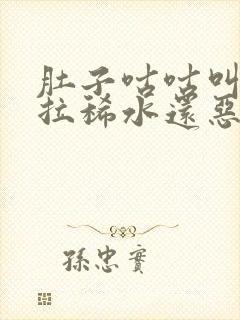 肚子咕咕叫
拉稀水還惡
孫忠實